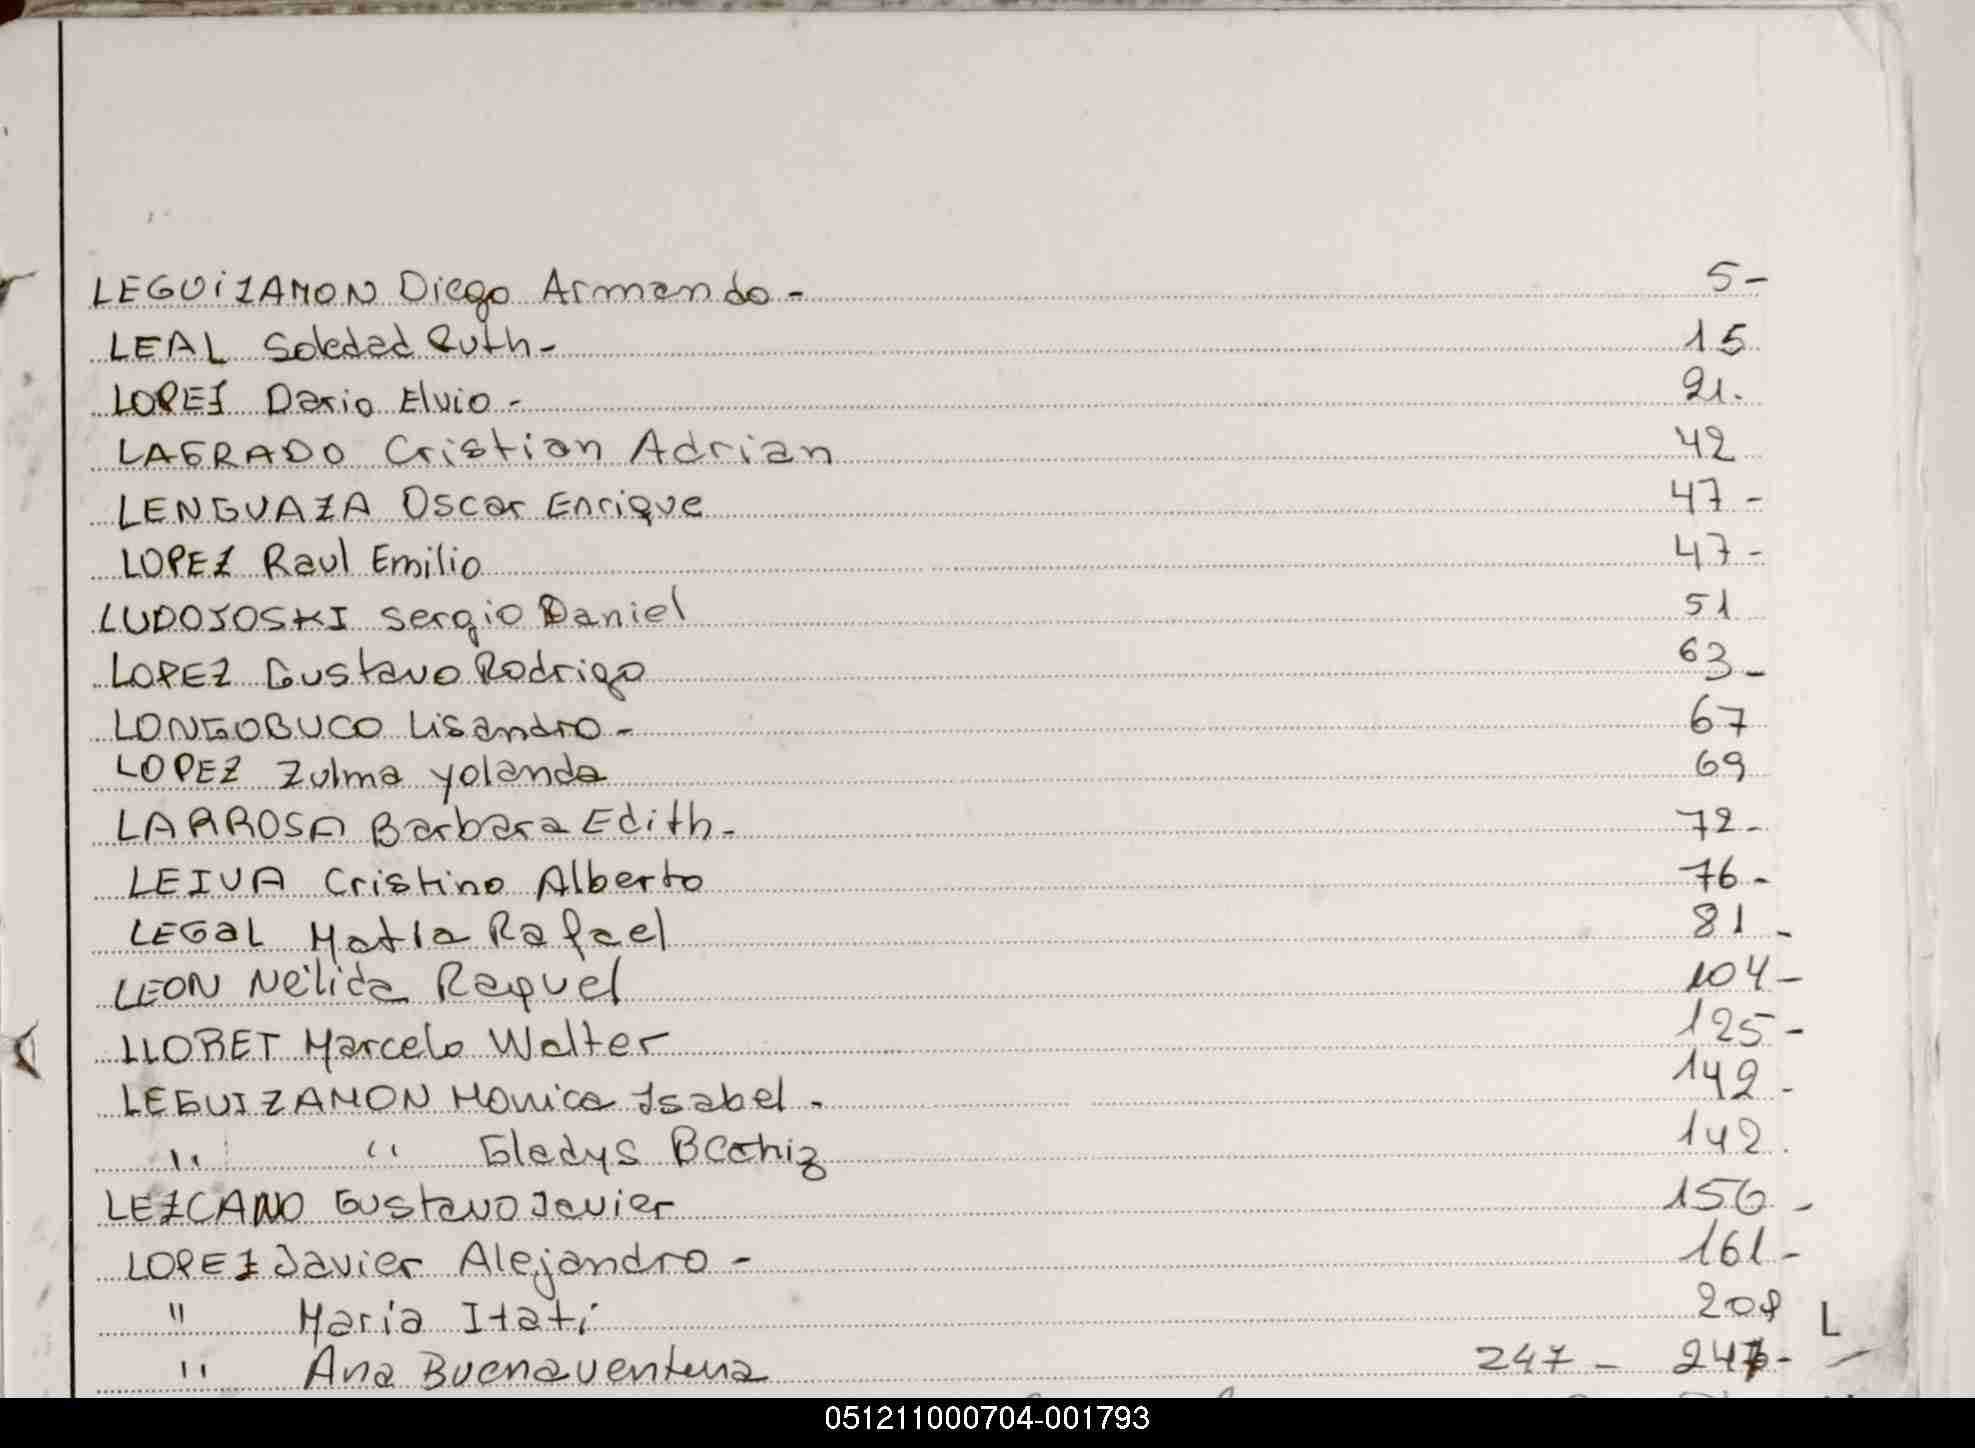 LEGUIZAMON Diego Armando - 5 -
LEAL Soledad Ruth - 15
LOPEZ Dario Elvio - 21.
LAGRADO Cristian Adrian 42
LENGUAZA Oscar Enrique 47 -
LOPEZ Raul Emilio 47 -
LUDOJOSKI Sergio Daniel 51
LOPEZ Gustavo Rodrigo 63 -
LONGOBUCO Lisandro - 67
LOPEZ Zulma Yolanda 69
LARROSA Barbara Edith - 72 -
LEIVA Cristino Alberto 76 -
LEGAL Matia Rafael 81 -
LEON Nélida Raquel 104 -
LLORET Marcelo Walter 125 -
LEGUIZAMON Monica Isabel - 142 -
" " Gladys Beatriz 142.
LEZCANO Gustavo Javier 156 -
LOPEZ Javier Alejandro - 161 -
" Maria Itati 208
L
" Ana Buenaventura 247 - 247 -
051211000704-001793